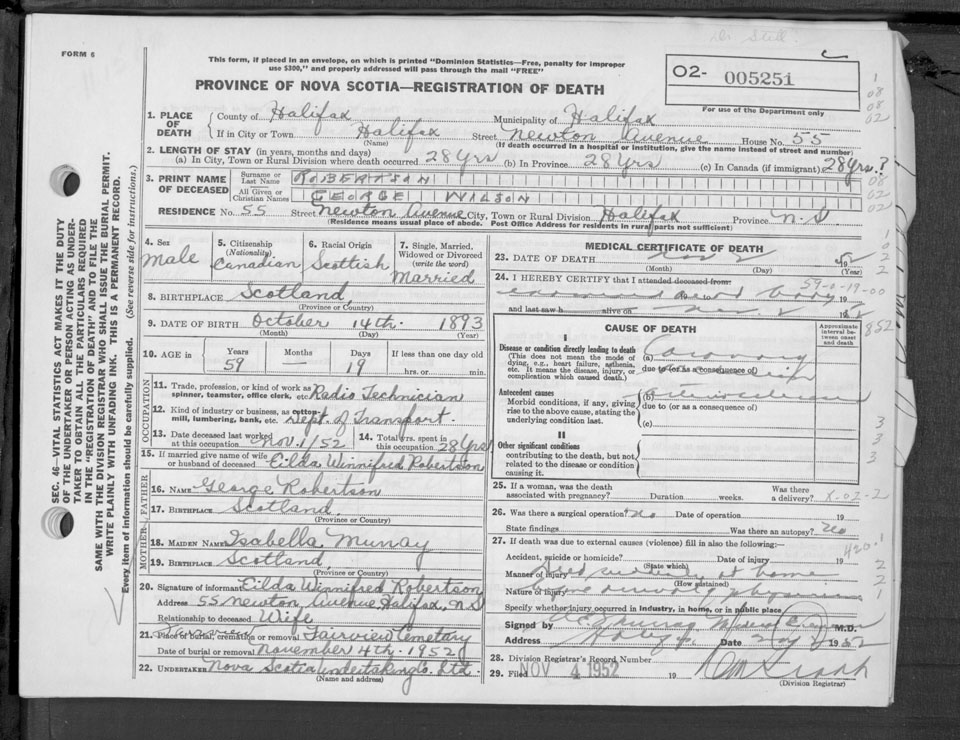 FORM 6
This form, if placed in an envelope, on which is printed "Dominion Statistics—Free, penalty for improper
use $300," and properly addressed will pass through the mail "FREE"
PROVINCE OF NOVA SCOTIA—REGISTRATION OF DEATH
O2- 005251
For use of the Department only
1. PLACE OF DEATH County of Halifax Municipality of Halifax
If in City or Town Halifax Street Newton Avenue House No. 55
(Name) (If death occurred in a hospital or institution, give the name instead of street and number)
2. LENGTH OF STAY (in years, months and days)
(a) In City, Town or Rural Division where death occurred 28 yrs (b) In Province 28 yrs (c) In Canada (if immigrant) 28 yrs.?
3. PRINT NAME OF DECEASED Surname or Last Name ROBERTSON
All Given or Christian Names GEORGE WILSON
RESIDENCE No. 55 Street Newton Avenue City, Town or Rural Division Halifax Province N.S.
(Residence means usual place of abode. Post Office Address for residents in rural parts not sufficient)
4. Sex Male
5. Citizenship (Nationality) Canadian
6. Racial Origin Scottish
7. Single, Married, Widowed or Divorced (write the word) Married
8. BIRTHPLACE Scotland
(Province or Country)
9. DATE OF BIRTH October 14th. 1893
(Month) (Day) (Year)
10. AGE in Years 59 Months Days 19 If less than one day old
hrs. or min.
OCCUPATION
11. Trade, profession, or kind of work as
spinner, teamster, office clerk, etc. Radio Technician
12. Kind of industry or business, as cotton-
mill, lumbering, bank, etc. Dept. of Transport.
13. Date deceased last worked at this occupation Nov. 1/52
14. Total yrs. spent in this occupation 28 yrs
15. If married give name of wife
or husband of deceased Eilda Winnifred Robertson
FATHER
16. NAME George Robertson
17. BIRTHPLACE Scotland.
(Province or Country)
MOTHER
18. MAIDEN NAME Isabella Murray
19. BIRTHPLACE Scotland
(Province or Country)
20. Signature of informant Eilda Winnifred Robertson
Address 55 Newton Avenue Halifax, N.S
Relationship to deceased Wife
21. Place of burial, cremation or removal Fairview Cemetary
Date of burial or removal November 4th. 1952
22. UNDERTAKER Nova Scotia Undertaking Co. Ltd.
(Name and address)
MEDICAL CERTIFICATE OF DEATH
23. DATE OF DEATH Nov 2
(Month) (Day) (Year)
24. I HEREBY CERTIFY that I attended deceased from:
59-0-19-00
examined dead body 19
and last saw h alive on 19
CAUSE OF DEATH
Approximate interval between onset and death
I
Disease or condition directly leading to death
(This does not mean the mode of dying, e.g., heart failure, asthenia, etc. It means the disease, injury, or complication which caused death.)
(a) Coronary
due to (or as a consequence of)
Antecedent causes
Morbid conditions, if any, giving rise to the above cause, stating the underlying condition last.
(b)
due to (or as a consequence of)
(c)
II
Other significant conditions
contributing to the death, but not related to the disease or condition causing it.
25. If a woman, was the death associated with pregnancy? Duration weeks. Was there a delivery? X-02-2
26. Was there a surgical operation? No Date of operation 19
State findings Was there an autopsy? No
27. If death was due to external causes (violence) fill in also the following:—
420-1
Accident, suicide or homicide? Date of injury 19
(State which)
Manner of injury Died suddenly at home
(How sustained)
Nature of injury no physician
Specify whether injury occurred in industry, in home, or in public place
Signed by Murray Medical Examiner M.D.
Address Date Nov 1952
28. Division Registrar's Record Number
29. Filed NOV 4 1952 19
(Division Registrar)
SEC. 46—VITAL STATISTICS ACT MAKES IT THE DUTY
OF THE UNDERTAKER OR PERSON ACTING AS UNDER-
TAKER TO OBTAIN ALL THE PARTICULARS REQUIRED
IN THE "REGISTRATION OF DEATH" AND TO FILE THE
SAME WITH THE DIVISION REGISTRAR WHO SHALL ISSUE THE BURIAL PERMIT.
WRITE PLAINLY WITH UNFADING INK. THIS IS A PERMANENT RECORD.
Every item of information should be carefully supplied. (See reverse side for instructions.)